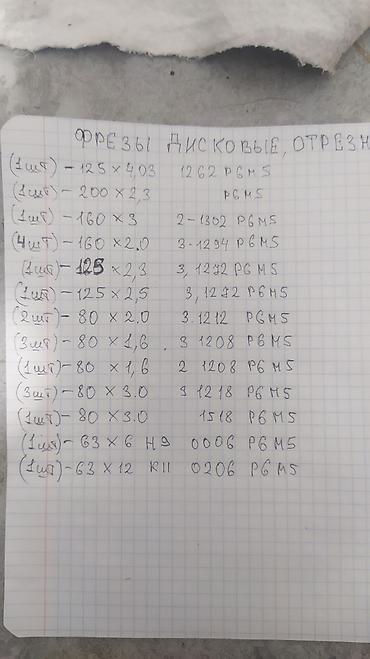 ФРЕЗЫ ДИСКОВЫЕ, ОТРЕЗН
(1шт) - 125 × 4,03 1262 Р6М5
(1шт) - 200 × 2,3 Р6М5
(1шт) - 160 × 3 2-1302 Р6М5
(4шт) - 160 × 2.0 3-1294 Р6М5
(1шт) - 125 × 2,3 3, 1272 Р6М5
(1шт) - 125 × 2,5 3, 1272 Р6М5
(2шт) - 80 × 2.0 3.1212 Р6М5
(3шт) - 80 × 1,6 . 3 1208 Р6М5
(1шт) - 80 × 1,6 2 1208 Р6М5
(3шт) - 80 × 3.0 3 1218 Р6М5
(1шт) - 80 × 3.0 1518 Р6М5
(1шт) - 63 × 6 Н9 0006 Р6М5
(1шт) - 63 × 12 К11 0206 Р6М5